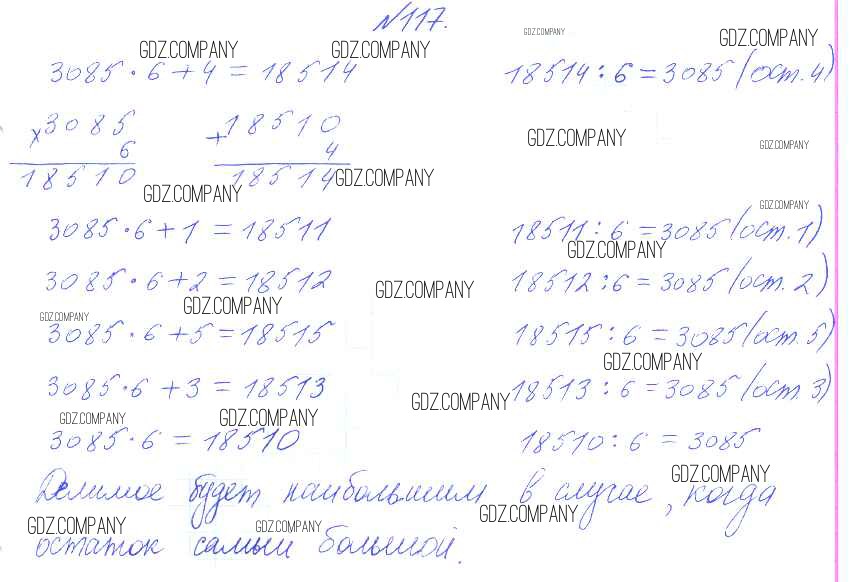 №117.
GDZ.COMPANY GDZ.COMPANY GDZ.COMPANY GDZ.COMPANY
3085 · 6 + 4 = 18514 18514 : 6 = 3085 (ост. 4)
× 3085 + 18510 GDZ.COMPANY GDZ.COMPANY
6 4
18510 18514 GDZ.COMPANY
GDZ.COMPANY GDZ.COMPANY
3085 · 6 + 1 = 18511 18511 : 6 = 3085 (ост. 1)
GDZ.COMPANY
3085 · 6 + 2 = 18512 GDZ.COMPANY 18512 : 6 = 3085 (ост. 2)
GDZ.COMPANY GDZ.COMPANY
3085 · 6 + 5 = 18515 18515 : 6 = 3085 (ост. 5)
GDZ.COMPANY
3085 · 6 + 3 = 18513 18513 : 6 = 3085 (ост 3)
GDZ.COMPANY GDZ.COMPANY GDZ.COMPANY
3085 · 6 = 18510 18510 : 6 = 3085
GDZ.COMPANY
Делимое будет наибольшим в случае, когда
GDZ.COMPANY GDZ.COMPANY GDZ.COMPANY
остаток самый большой.